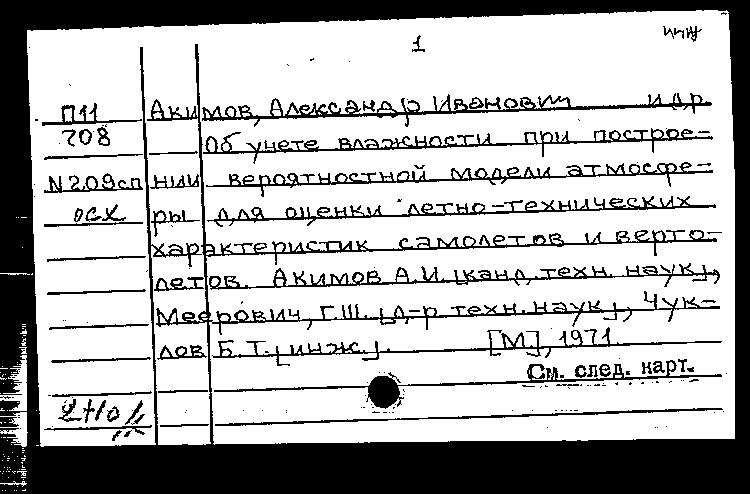 1
П11 Акимов, Александр Иванович и др.
708 Об учете влажности при построе-
N209сп нии вероятностной модели атмосфе-
осх ры для оценки летно-технических
характеристик самолетов и верто-
летов. Акимов А.И. [канд. техн. наук],
Меерович, Г.Ш. [д-р техн. наук], Чук-
лов Б.Т. [инж.]. [М], 1971.
См. след. карт.